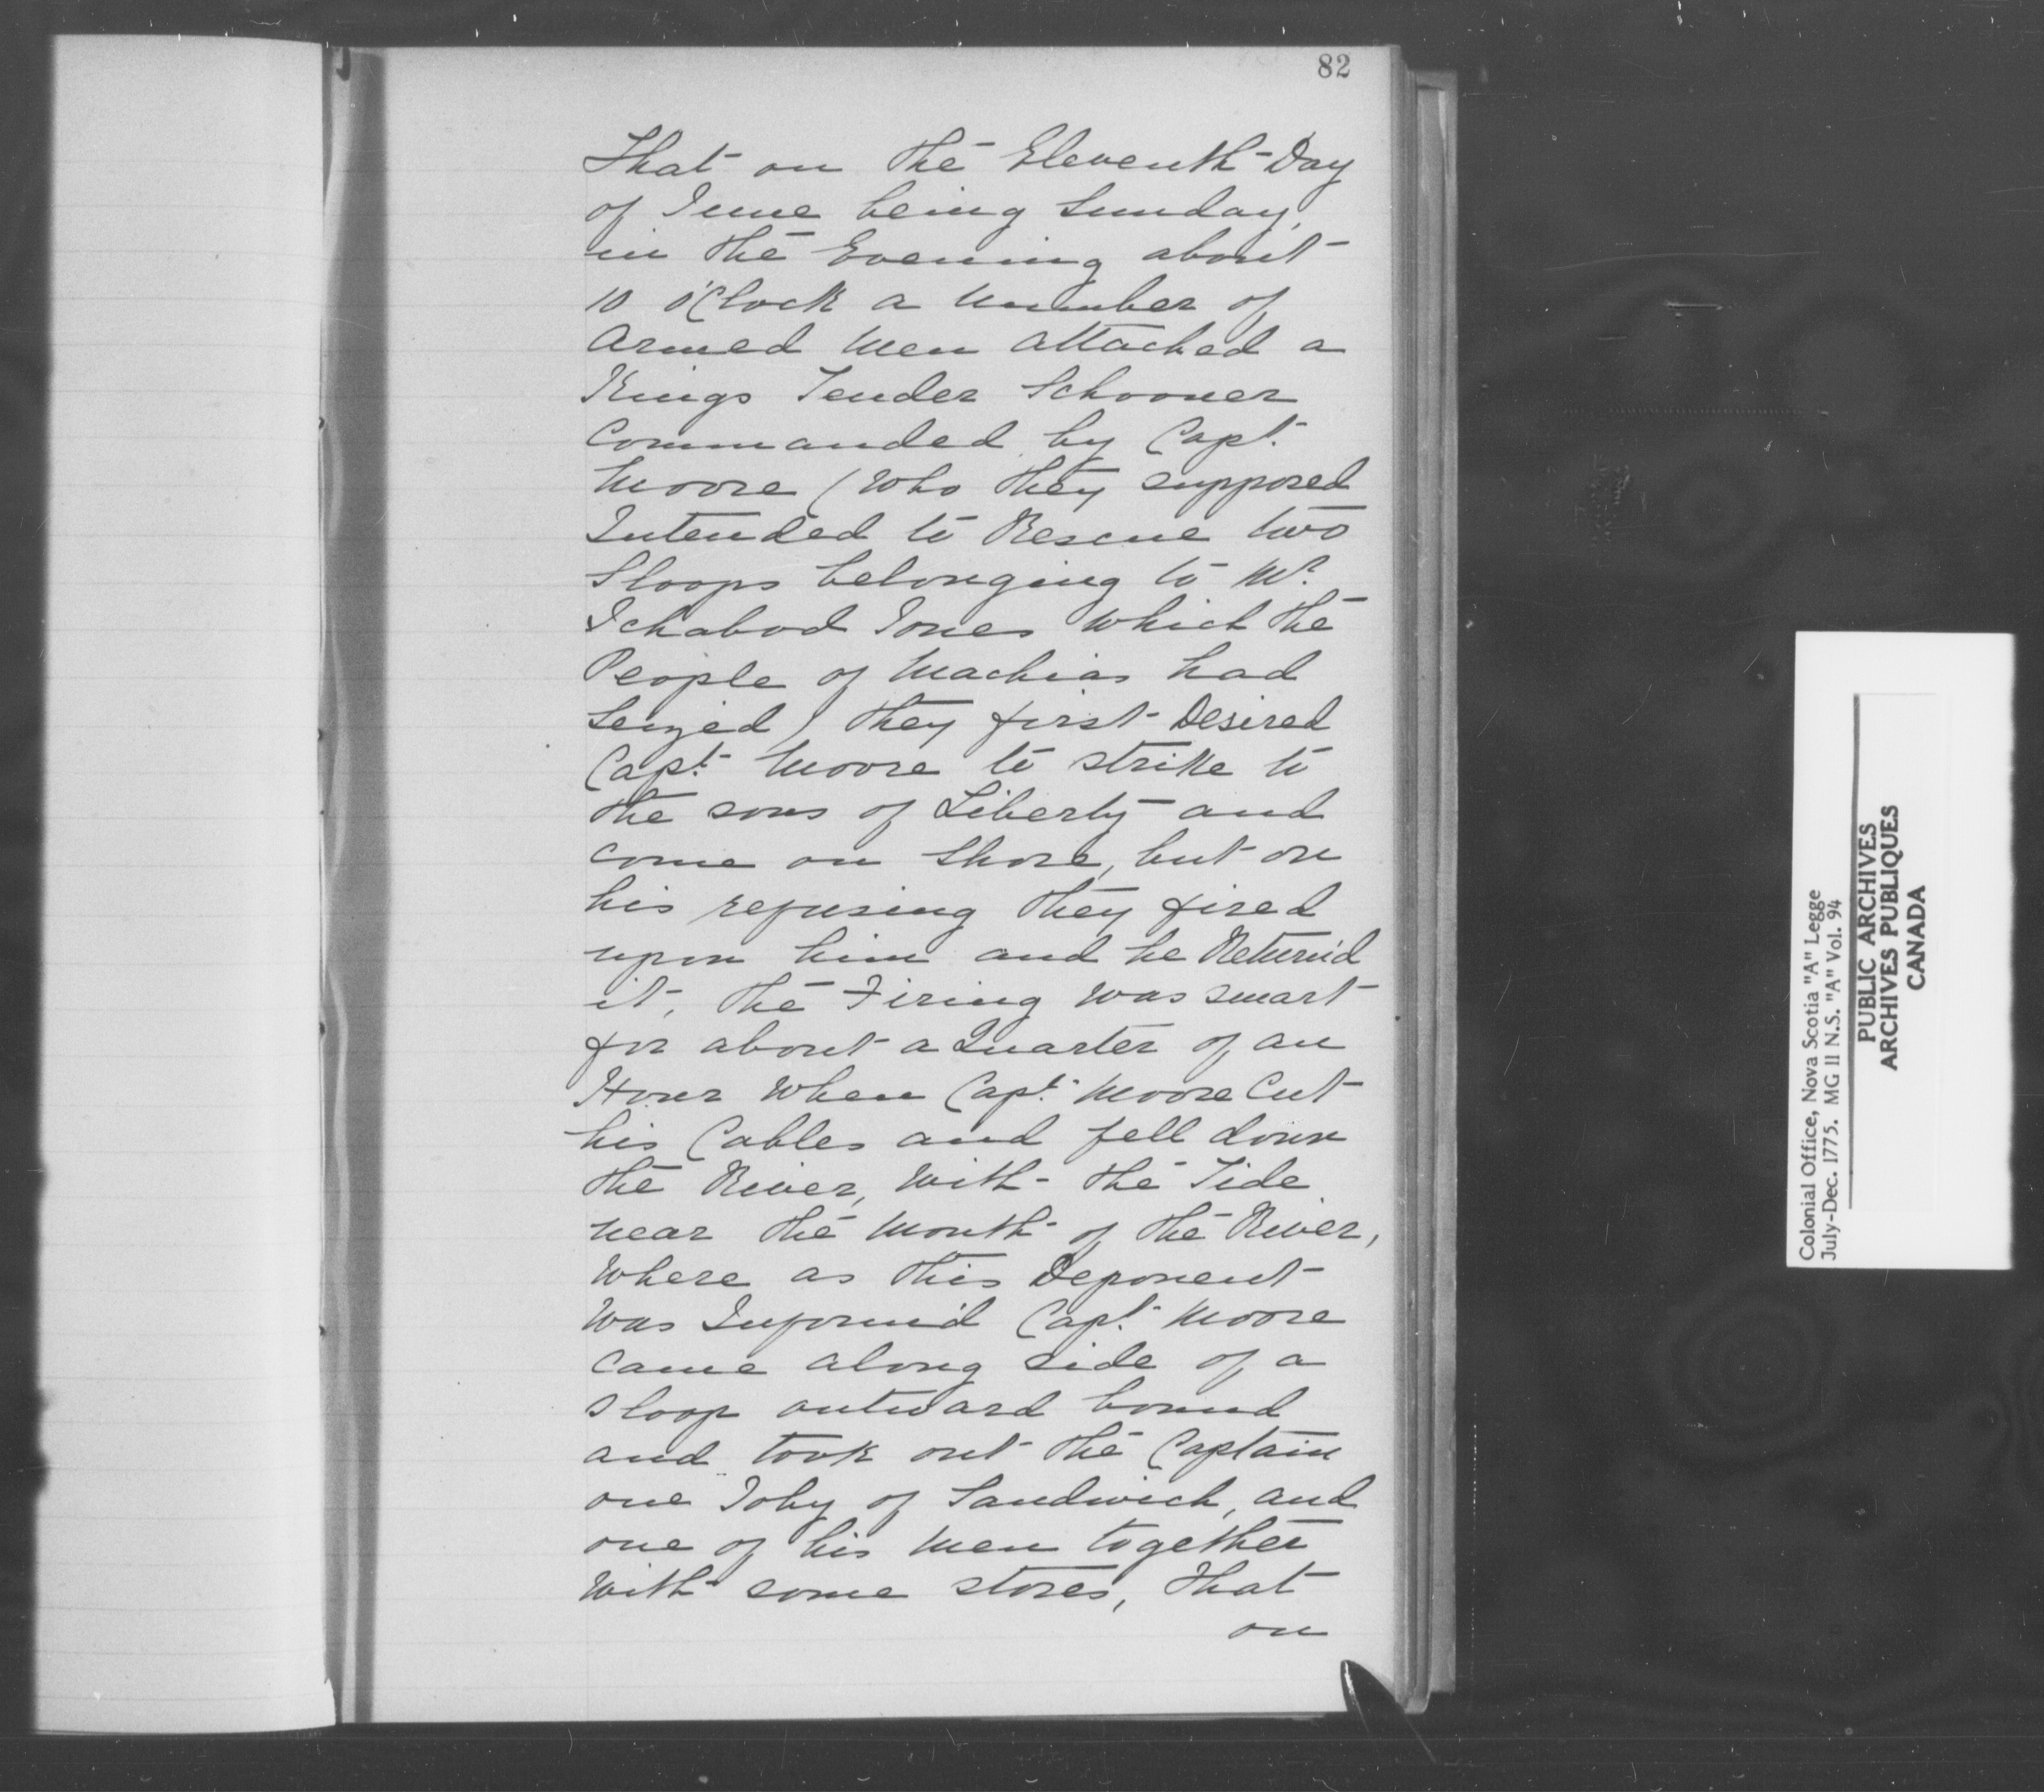 82
That on the Eleventh Day
of June being Sunday,
in the Evening about
10 o'Clock a Number of
Armed Men attacked a
Kings Tender Schooner
Commanded by Capt.
Moore (who they supposed
Intended to Rescue two
Sloops belonging to Mr.
Ichabod Jones which the
People of Machias had
Seized) they first Desired
Capt. Moore to strike to
the sons of Liberty and
come on Shore, but on
his refusing they fired
upon him and he Return'd
it, the Firing was smart
for about a Quarter of an
Hour when Capt. Moore Cut
his Cables and fell down
the River, with the Tide
near the Mouth of the River,
where as this Deponent
was Inform'd Capt. Moore
came along side of a
Sloop outward bound
and took out the Captain
one Toby of Sandwich, and
one of his Men together
with some stores, that
on
Colonial Office, Nova Scotia "A" Legge
July-Dec. 1775. MG 11 N.S. "A" Vol. 94
PUBLIC ARCHIVES
ARCHIVES PUBLIQUES
CANADA